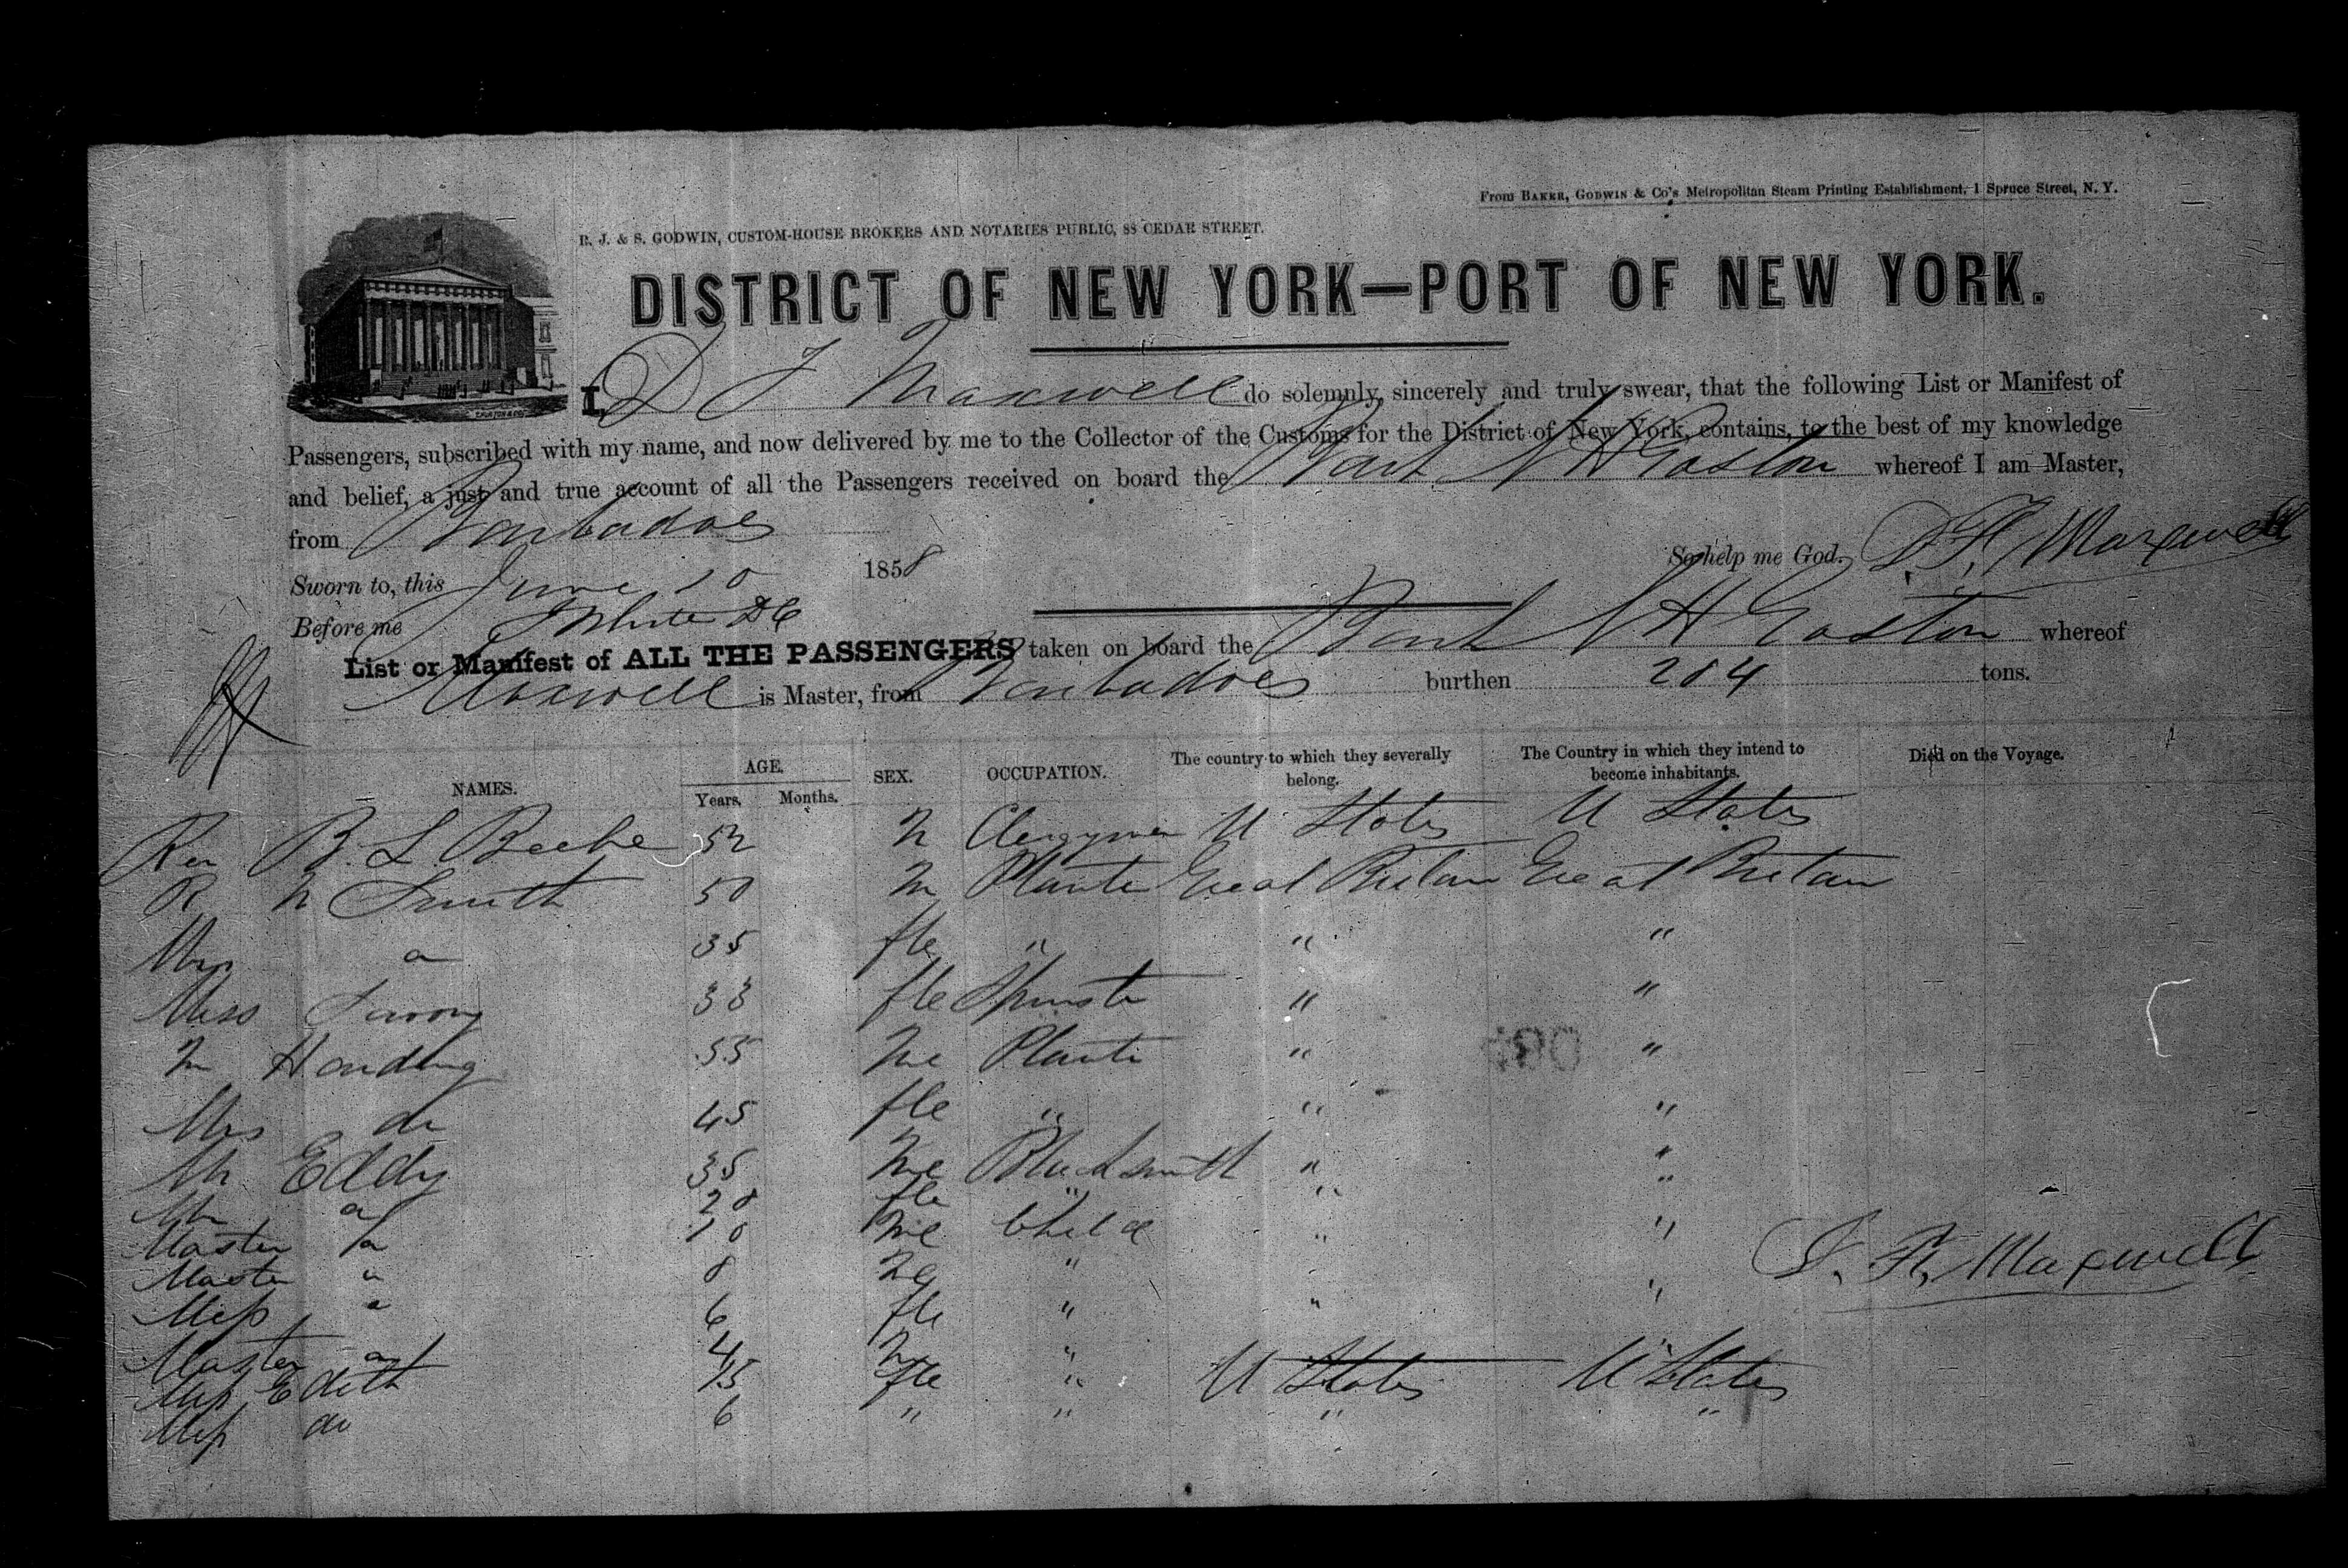 From BAKER, GODWIN & Co's Metropolitan Steam Printing Establishment, 1 Spruce Street, N. Y.
R. J. & S. GODWIN, CUSTOM-HOUSE BROKERS AND NOTARIES PUBLIC, 88 CEDAR STREET.
DISTRICT OF NEW YORK—PORT OF NEW YORK.
I, D F Maxwell do solemnly, sincerely and truly swear, that the following List or Manifest of
Passengers, subscribed with my name, and now delivered by me to the Collector of the Customs for the District of New York, contains, to the best of my knowledge
and belief, a just and true account of all the Passengers received on board the Bark N H Gaston whereof I am Master,
from Barbadoes
So help me God. D. F. Maxwell
Sworn to, this June 10 1858
Before me J White DC
List or Manifest of ALL THE PASSENGERS taken on board the Bark N H Gaston whereof
Maxwell is Master, from Barbadoes burthen 204 tons.
NAMES. AGE. Years. Months. SEX. OCCUPATION. The country to which they severally belong. The Country in which they intend to become inhabitants. Died on the Voyage.
Rev B. L Beebe 52 M Clergyman U States U States
R M Smith 50 M Plante Great Britain Great Britain
Mrs " 35 fle " " "
Miss 33 fle Spinste " "
M Harding 55 Me Plante " "
Mrs do 45 fle " " "
Mr Eddy 35 Me Blacksmith " "
Mrs " 28 fle " " "
Master " 10 Me Child " "
Master " 8 Me "
Miss " 6 fle " " "
D. F. Maxwell
Master " 4 M "
Miss Edith 15 fle " U States U States
Miss do 6 " " " "